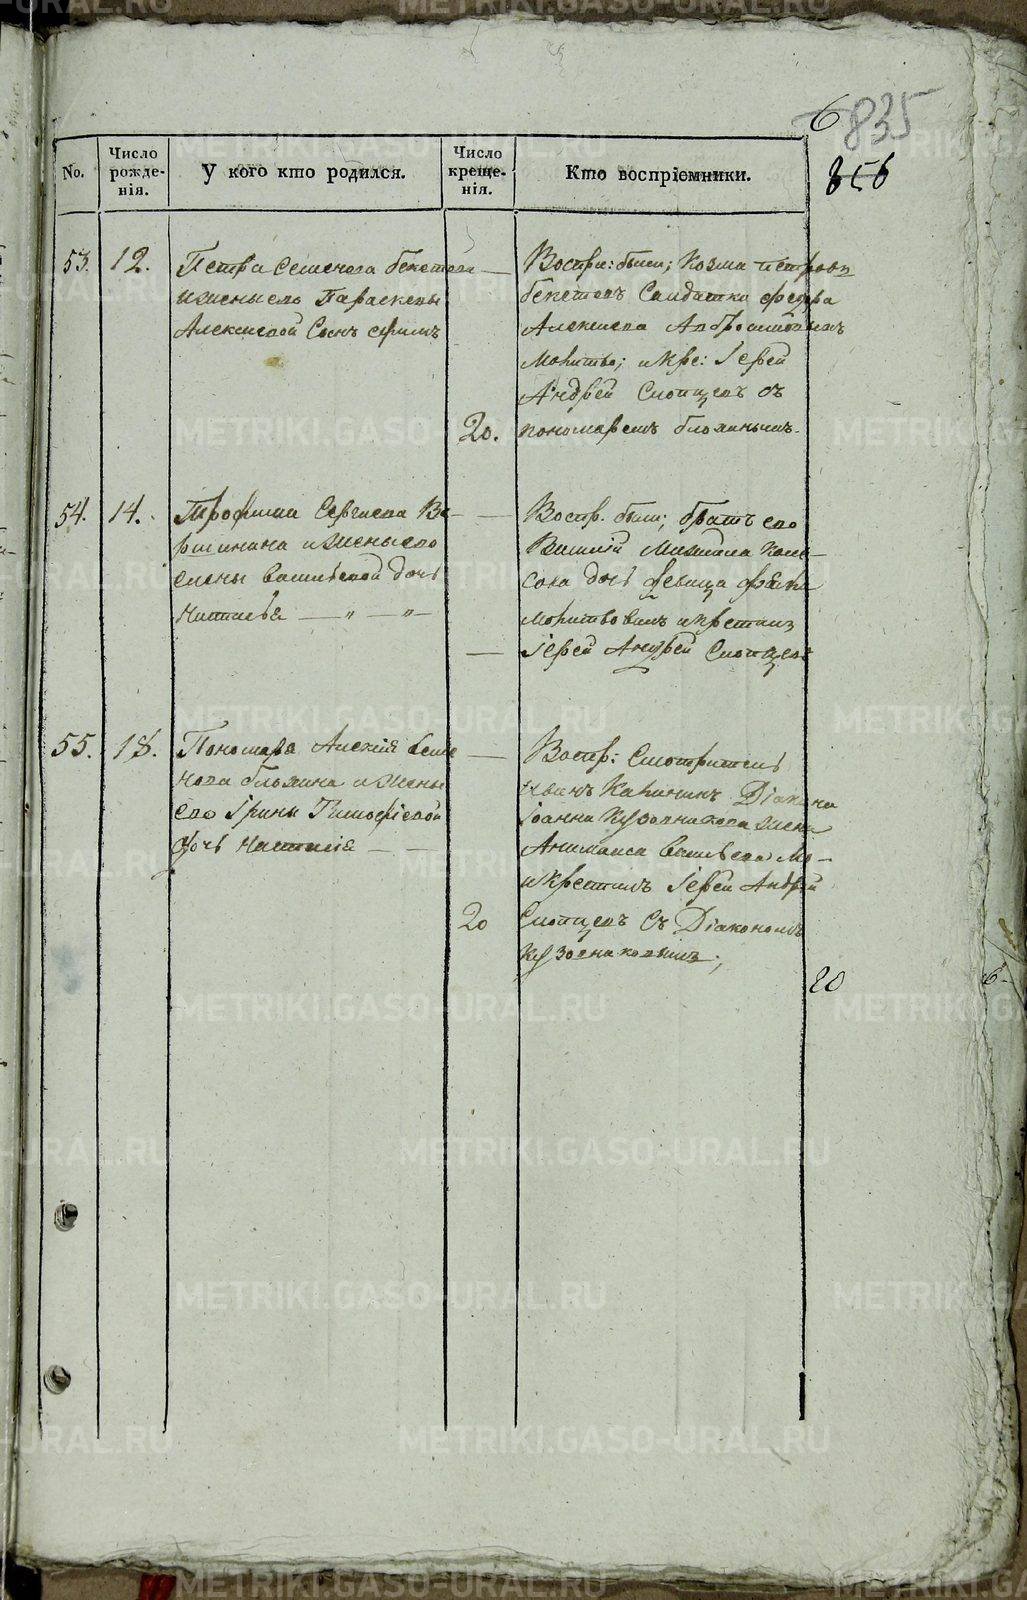 6
835
856
No.
Число рожде-нія.
У кого кто родился.
Число креще-нія.
Кто воспріемники.
53. 12.
Петра Семенова бекетова
и жены его Параскевы
Алексіевой Сынъ ефимъ
Воспри: были; Козма Петровъ
бекетовъ Солдатка
Алексіева
Молитво; и кре: Іерей
Андрей Слопцовъ съ
20. пономаремъ блохинымъ.
54. 14.
Трофима Сергиева Ве-
ршинина и жены его
елены Васильевой дочь
Наталья — „ — „ —
Воспр. были; братъ его
Василій Михаила Коле-
сова дочь девица
молитвовалъ и крестилъ
Іерей Андрей Слопцовъ
55. 18.
Пономаря Алексія Семе
нова блохина и жены
его Ірины Тимофіевой
дочь Наталія — —
Воспр: Смотритель
Иванъ Калининъ Діакона
Іоанна Кузовникова жена
Васильева Мо-
и крестилъ Іерей Андрей
20 Слопцовъ Съ Діакономъ
Кузовниковымъ;
20
6-
METRIKI.GASO-URAL.RU